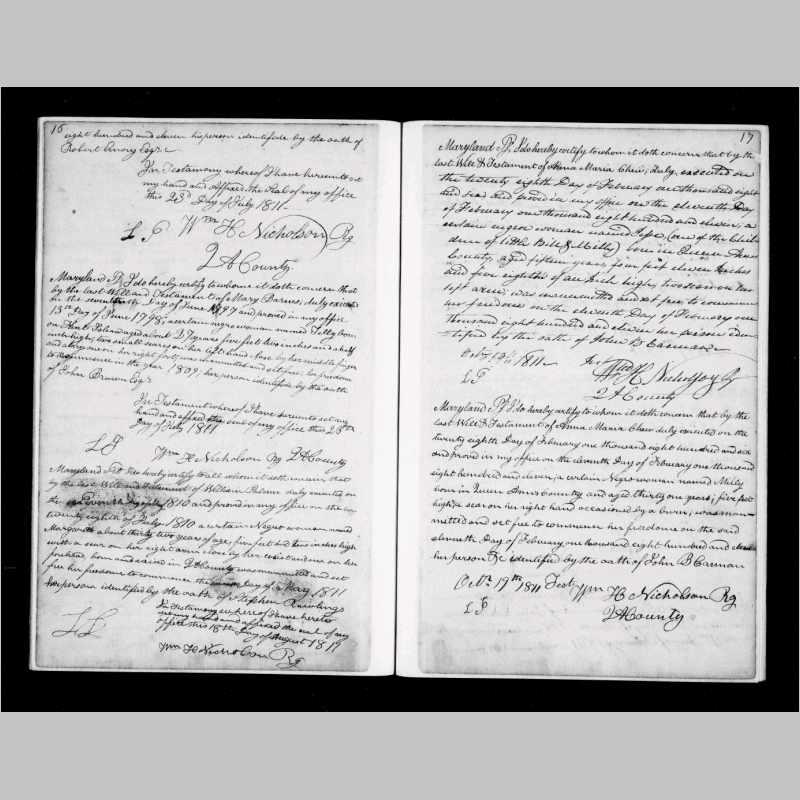 16
eight hundred and eleven his person identified by the oath of
Robert Emory Esqr.
In Testamony whereof I have hereunto set
my hand and affixed the Seal of my office
this 23d Day of July 1811
L S Wm H Nicholson Rg
QA County
Maryland Ss I do hereby certify to whom it doth concern that
by the last Will and Testament of Mary Barnes, duly executed
on the seventh Day of June 1797 and proved in my office
13th day of June 1798, a certain negro woman named Tilly born
on Kent Island aged about 27 years five feet two inches and a half
inch high, two small scars on her left hand close by her middle finger
and a large one on her right foot, was manumitted and set free, her freedom
to commence in the year 1809, her person identified by the oath
of John Brown Esqr
In Testament whereof I have hereunto set my
hand and affixed the seal of my office this 23d
Day of July 1811
L S Wm H Nicholson Rg QA County
Maryland Sst I do hereby certify to all whom it doth concern that
by the last Will and Testament of William Palmer duly executed on
the 1810 and proved in my office on the
twenty eighth of July 1810 a certain Negro woman named
about thirty two years of age, five feet two inches high
with a scar on her right arm close by her wrist and one on her
forehead, born and raised in QA County was manumitted and set
free her freedom to commence the day of May 1811
her person identified by the oath of Stephen Rawlings
In Testamony whereof I have hereto
set my hand and affixed the seal of my
office this 18th Day of August 1811
L S
Wm H Nicholson Rg
17
Maryland Ss. I do hereby certify to whom it doth concern that by the
last Will & Testament of Anna Maria Chew, duly executed on
the twenty eighth Day of February one thousand eight
hundred and and proved in my office on the eleventh Day
of February one thousand eight hundred and eleven, a
certain negro woman named (one of the Chil-
dren of little Bill & Milly) born in Queen Anns
County, aged fifteen years four feet eleven inches
and five eighths of an Inch high, on her
left arm, was manumitted and set free to commence
her freedom on the eleventh Day of February one
thousand eight hundred and eleven her person iden-
tified by the oath of John B Carman
Octr. 19th 1811 Test
L S Wm H Nicholson Rg
QA County
Maryland Ss I do hereby certify to whom it doth concern that by the
last Will & Testament of Anna Maria Chew duly executed on the
twenty eighth Day of February one thousand eight hundred and six
and proved in my office on the eleventh Day of February one thousand
eight hundred and eleven, a certain Negro woman named Milly
born in Queen Anns County and aged thirty one years; five feet
high, a scar on her right hand occasioned by a burn, was manu-
mitted and set free to commence her freedom on the said
eleventh Day of February one thousand eight hundred and eleven
her person &c identified by the oath of John B Carman
Octr. 19th 1811 Test Wm H Nicholson Rg
L S QA County